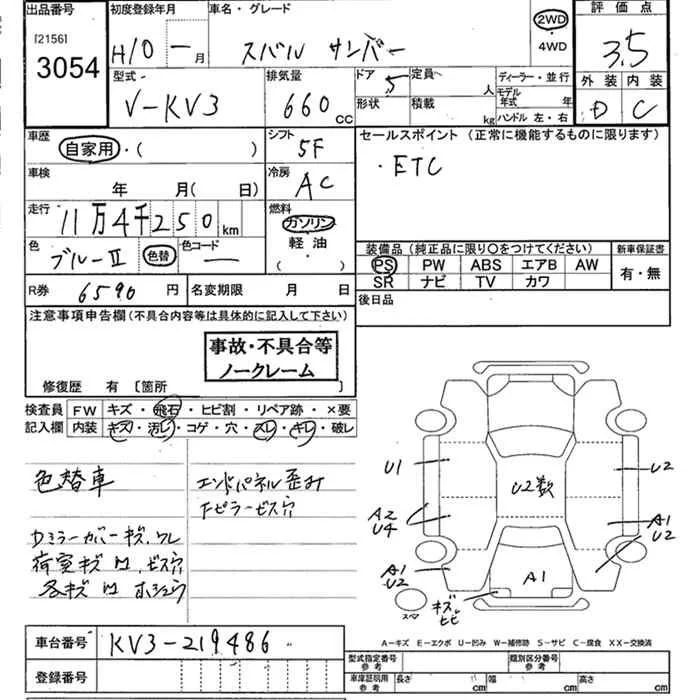 出品番号 初度登録年月 車名・グレード 2WD 評価点
[2156] H10 - 月 スバル サンバー ・4WD 3.5
3054
型式 排気量 ドア 定員 ディーラー・並行 外装 内装
V-KV3 660cc 5 人 モデル年式 年 D C
形状 積載 kg ハンドル 左・右
車歴 シフト セールスポイント (正常に機能するものに限ります)
自家用・( ) 5F ・ETC
車検 冷房
年 月( 日) AC
走行 燃料
11万4千250km ガソリン
色 色コード 軽油
ブルーII 色替 ー ( )
装備品(純正品に限り〇をつけてください) 新車保証書
PS PW ABS エアB AW 有・無
SR ナビ TV カワ
R券 6590円 名変期限 月 日 後日品
注意事項申告欄(不具合内容等は具体的に記入して下さい)
事故・不具合等
ノークレーム
修復歴 有 [箇所 ]
検査員 FW キズ・飛石・ヒビ割・リペア跡・×要
記入欄 内装 キズ・汚レ・コゲ・穴・スレ・キレ・破レ
色替車 エンドパネル歪み
ピラービス穴
ミラーカバーキズ、ワレ
荷室キズ凹、ビス穴
各キズ凹ホシュウ
U1 U2
U2数
A2 A1
U4 U2
A1
U2
A1
キズ、
ヒビ
スペア
A-キズ E-エクボ U-凹み W-補修跡 S-サビ C-腐食 XX-交換済
車台番号 KV3-219486
型式指定番号 参考 類別区分番号 参考
登録番号 車庫証明用 参考 長さ cm 幅 cm 高さ cm